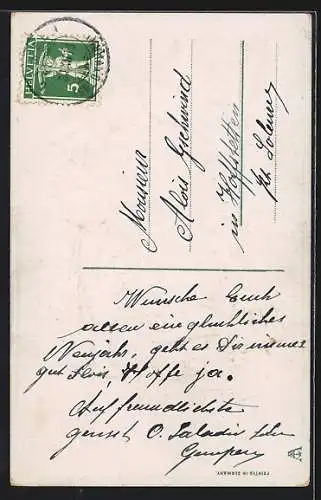 HELVETIA
5
Monsieur
Alois Gschwind
in Hofstetten
Kt. Solour
Wünsche Euch
allen ein glückliches
Neujahr, geht es Dir immer
gut Alois, Hoffe ja.
Auf freundlichste
grüsst O. Saladin
Gempen
PRINTED IN GERMANY